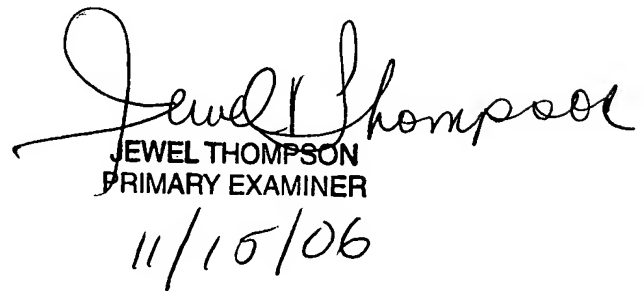 Jewel Thompson
JEWEL THOMPSON
PRIMARY EXAMINER
11/15/06